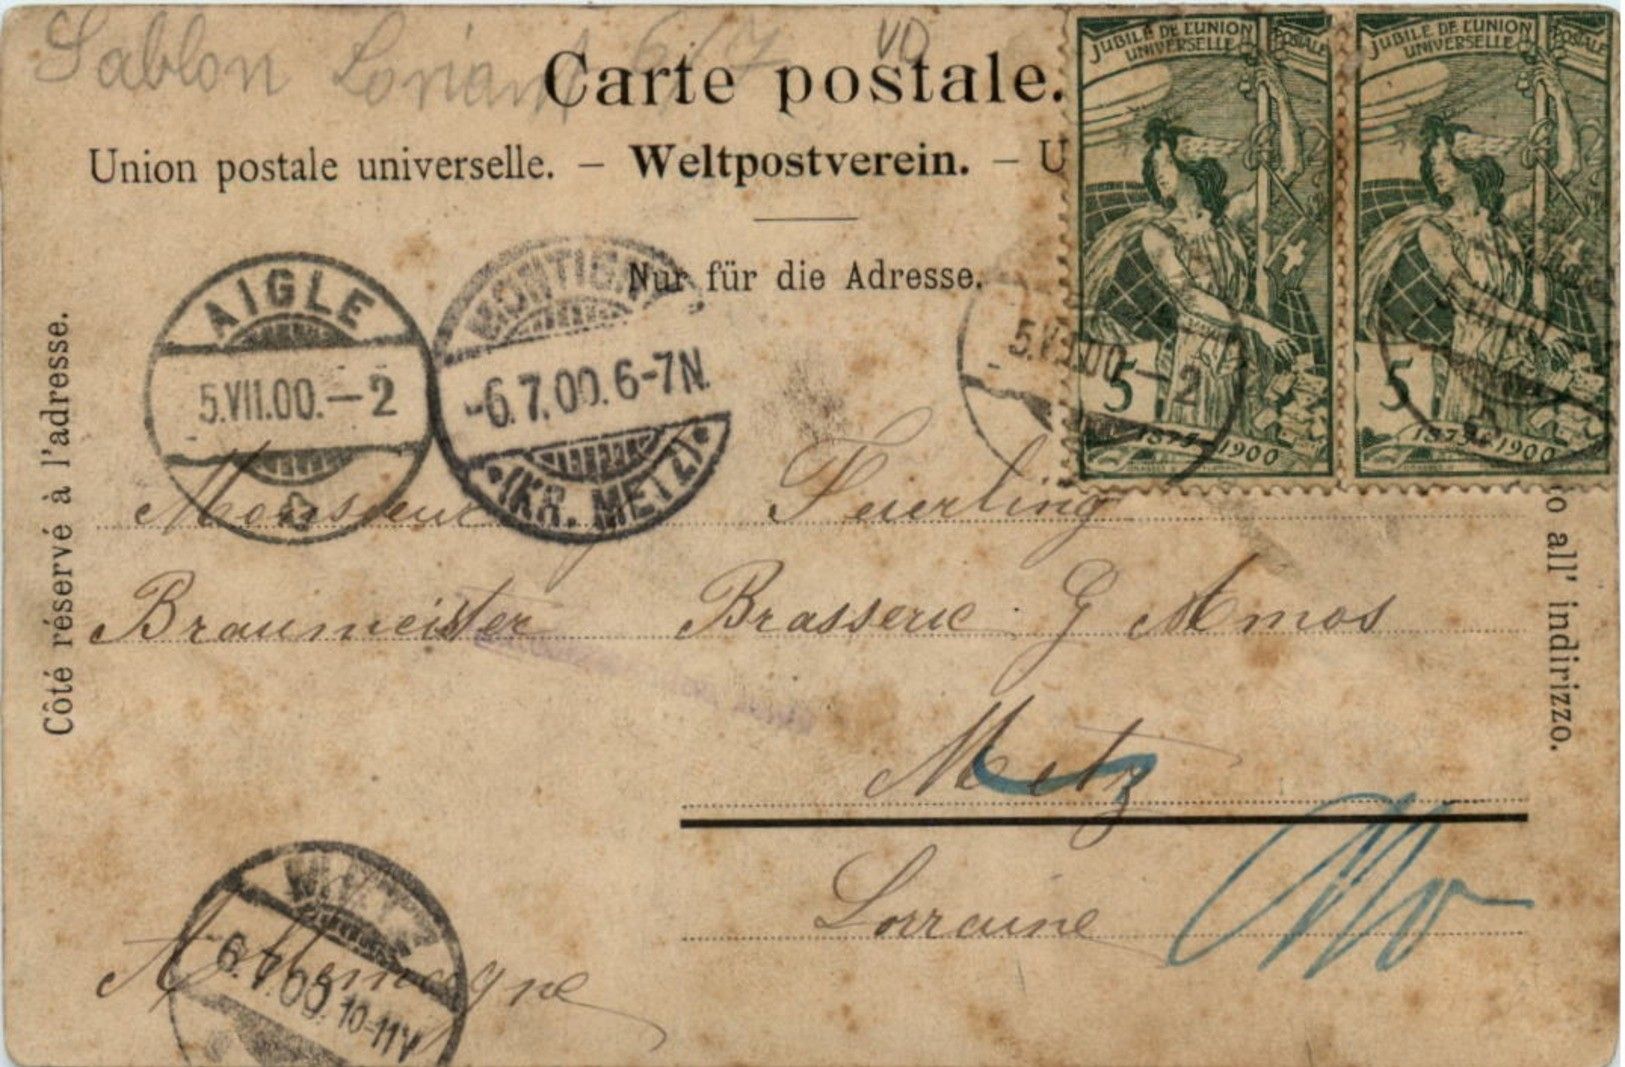 Sablon Lorian 6/7 VD
Carte postale.
JUBILE DE L'UNION POSTALE
UNIVERSELLE
5
1875-1900
JUBILE DE L'UNION POSTALE
UNIVERSELLE
5
1875-1900
Union postale universelle. – Weltpostverein. – U
Nur für die Adresse.
Côté réservé à l'adresse.
o all' indirizzo.
AIGLE
5.VII.00.–2
MONTIGNY
-6.7.00.6-7N.
*(KR. METZ)*
5.VII.00–2
5.VII.00
Monsieur Feierling
Braumeister Brasserie G Amos
Metz
Lorraine
Allemagne
METZ
6.7.00.10-11V